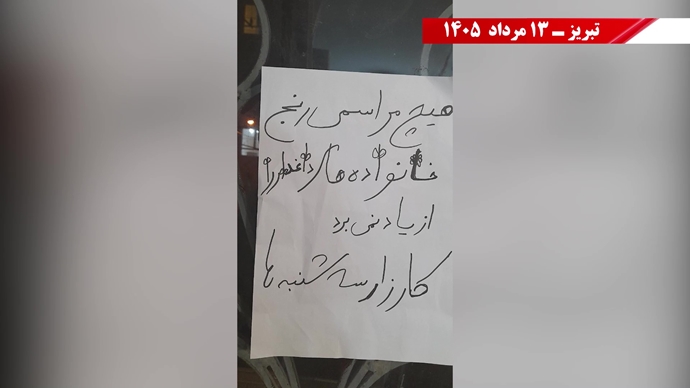 تبریز ـ ۱۳ مرداد ۱۴۰۵
هیچ مراسمی رنج
خانواده های داغدار را
از یاد نمی برد
کارزار سه شنبه ها